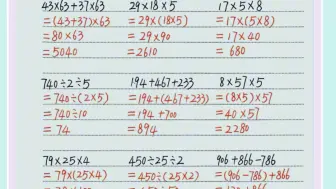 43×63+37×63 29×18×5 17×5×8
=(43+37)×63 =29×(18×5) =17×(5×8)
=80×63 =29×90 =17×40
=5040 =2610 =680
740÷2÷5 194+467+233 8×57×5
=740÷(2×5) =194+(467+233) =(8×5)×57
=740÷10 =194+700 =40×57
=74 =894 =2280
79×25×4 450÷25÷2 906+866-786
=79×(25×4) =450÷(25×2) =(906-786)+866